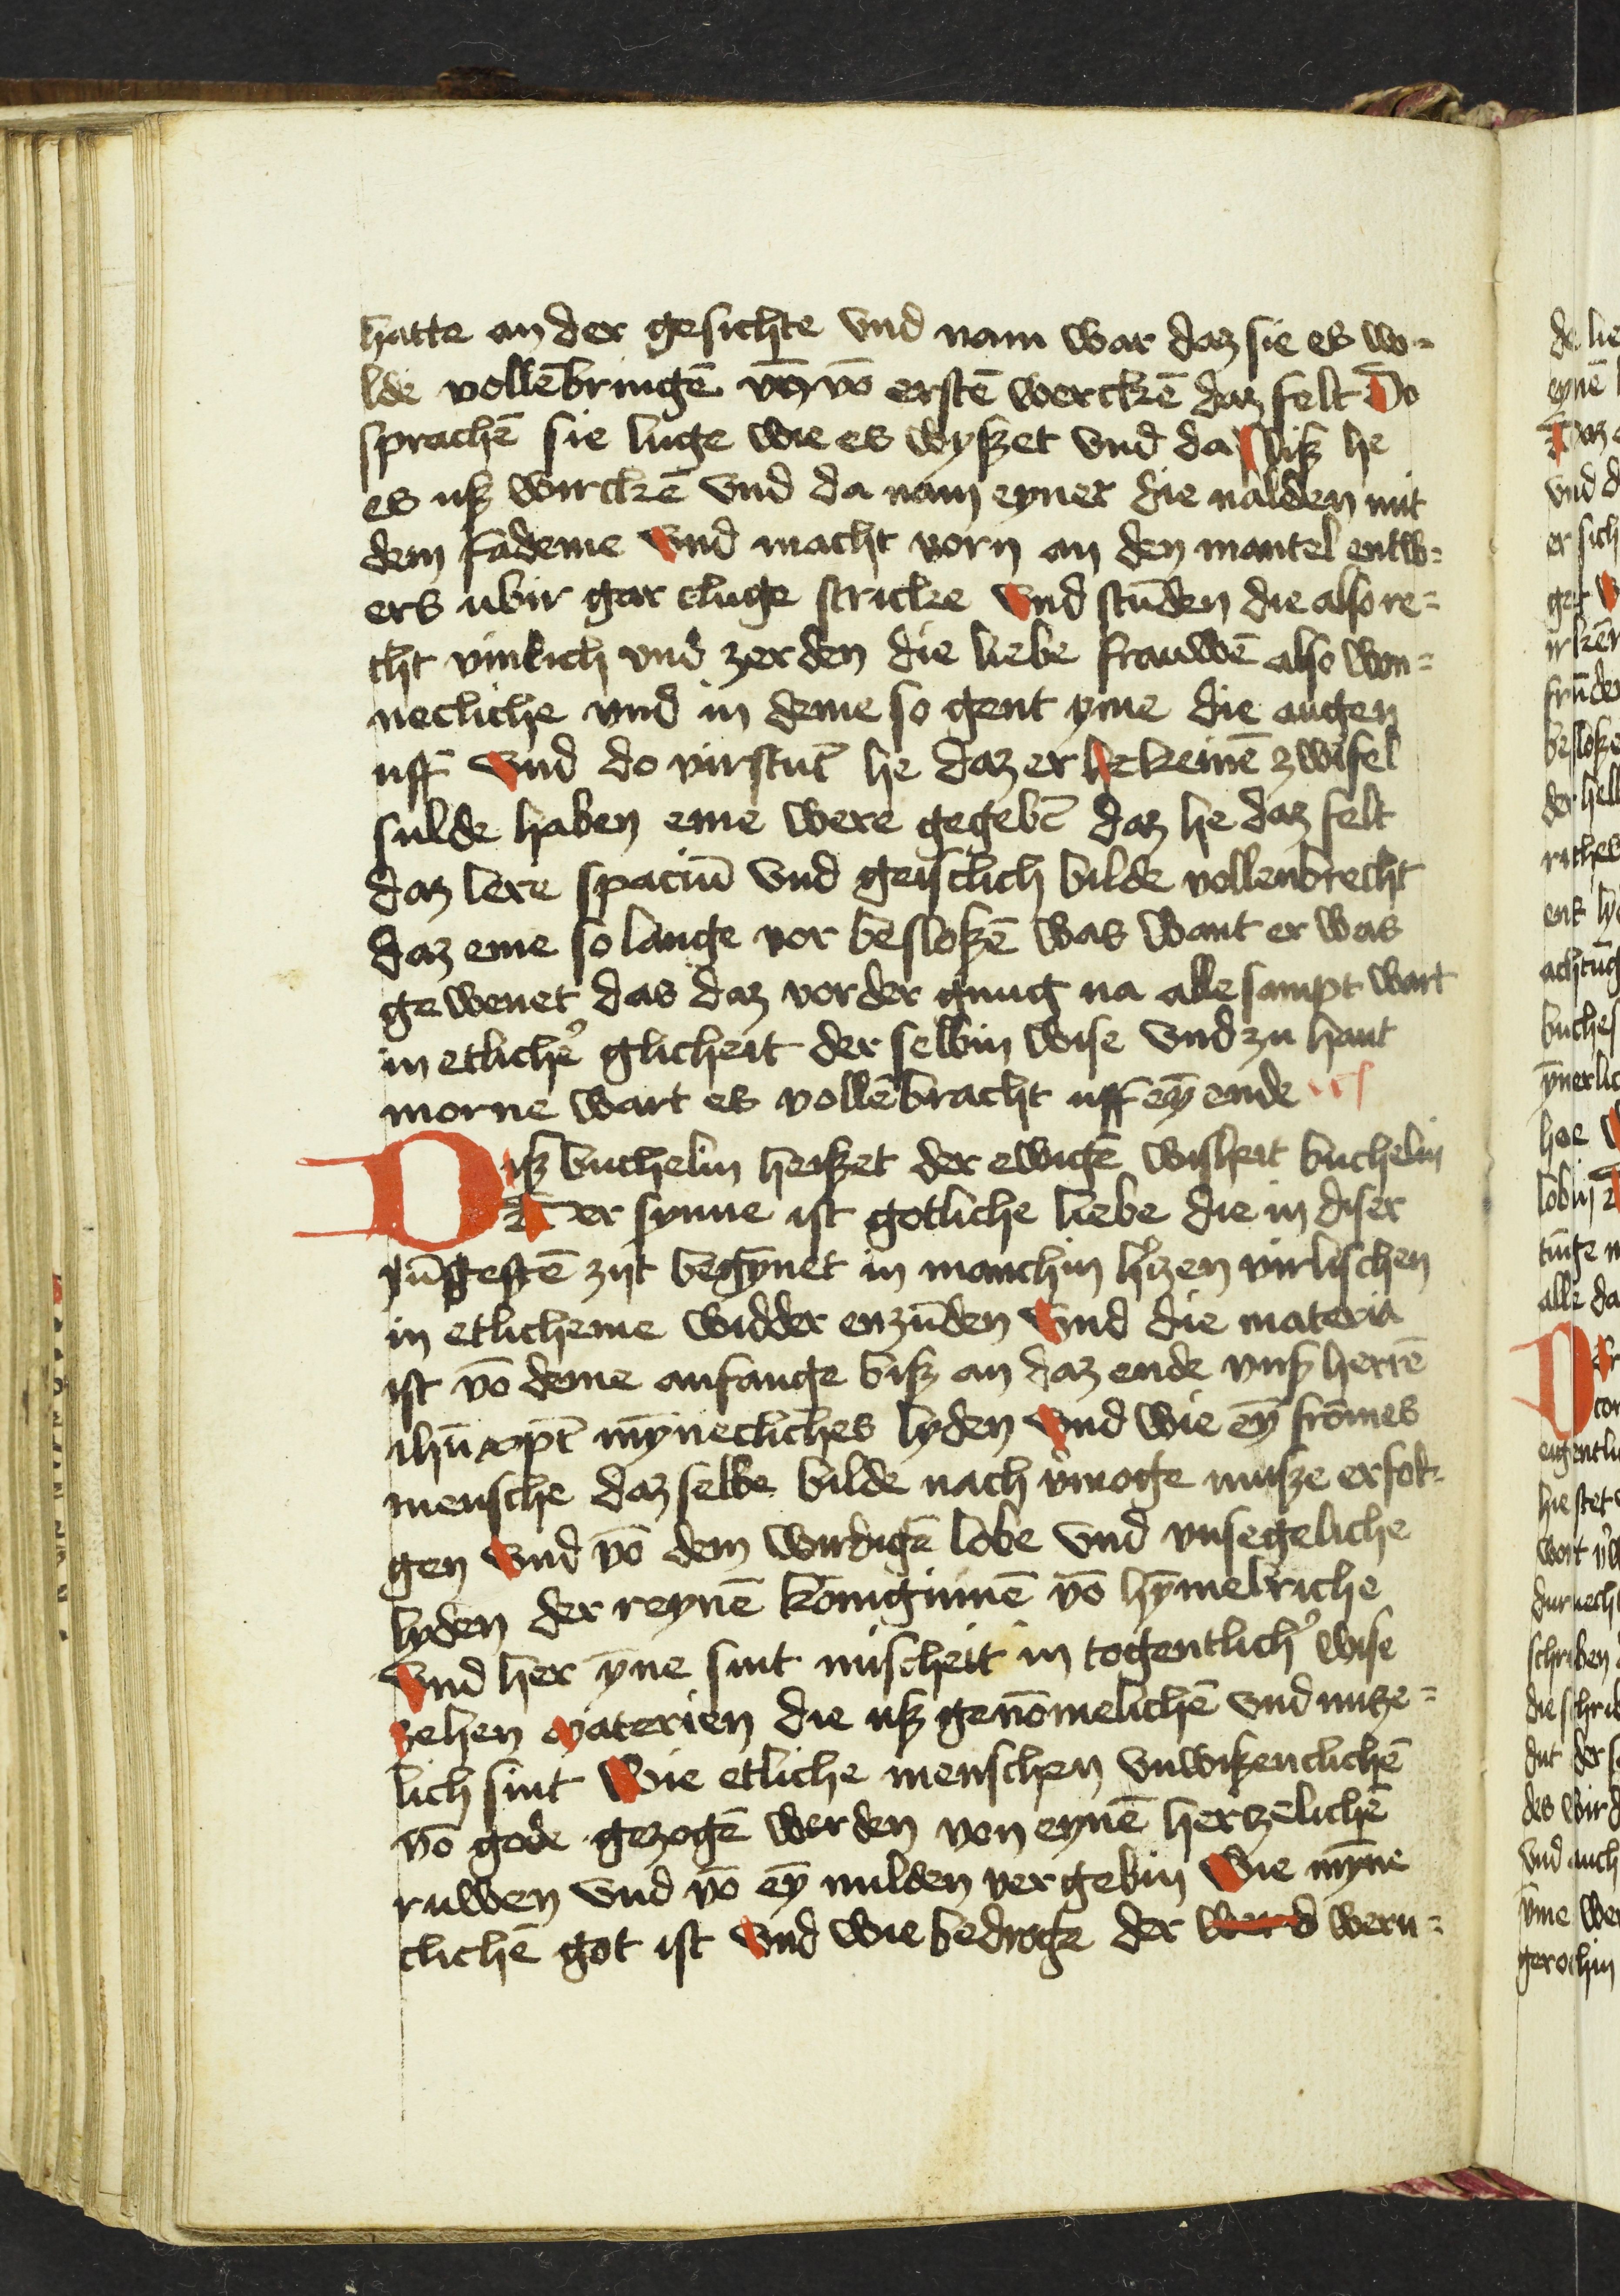 hatte an der gesichte vnd nam war daz sie es wo-
lde vollēbringē vō erstē werckē daz felt Do
sprachē sie luge wie es wyßet vnd da liß he
es uß wirckē vnd da nam eyner die nalden mit
dem fademe vnd macht vorn an den mantel entw-
ers ubir gar cluge stricke vnd stūden die also re-
cht vinlich vnd zerden die liebe frauwē also won-
necliche vnd in deme so gent yme die augen
uff vnd do virstūt he daz er keinē zwifel
sulde haben eme were gegebē daz he daz felt
daz lere spaciū vnd geistlich bilde vollenbrecht
daz eme so lange vor besloßē was want er was
gewenet das daz vor der gnug na alle sampt wart
in etlicher glicheit der selbin wise vnd zu hant
morne wart es vollēbracht uff eȳ ende
Diß buchelin heißet der ewigē wisheit buchelin
Der synne ist gotliche liebe die in diser
jūgestē zijt begȳnet in manchin h'zen virlischen
in etlicheme widder enzūden vnd die materia
ist vō deme anfange biß an daz ende vnß herrē
ihū xpī mȳnecliches lyden vnd wie eȳ frōmes
mensche daz selbe bilde nach v'moge muße erfol-
gen vnd vō dem wirdigē lobe vnd vnsegeliche
lyden der reynē konigīnnē vō hȳmelriche
vnd her ȳne sint mischeit in togentlich' wise
zehen materien die uß genōmelichē vnd nutze-
lich sint Wie etliche menschen vnwißenclichē
vō gode gezogē werden von eynē hertzelichē
ruwen vnd vō eȳ milden vergebin Wie mȳne
clichē got ist vnd wie bedroge der werd wern-